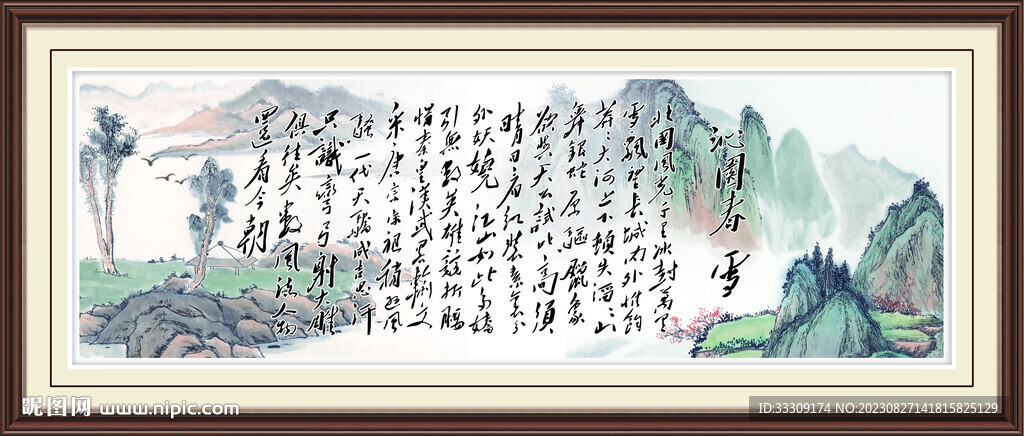 沁園春 雪
北國風光千里冰封萬里
雪飄望長城内外惟餘
莽〻大河上下頓失滔〻山
舞銀蛇原驅臘象
欲與天公試比高須
晴日看紅裝素裹分
外妖嬈江山如此多嬌
引無數英雄競折腰
惜秦皇漢武略輸文
采唐宗宋祖稍遜風
騷一代天驕成吉思汗
只識彎弓射大雕
俱往矣數風流人物
還看今朝
昵图网 www.nipic.com
ID:33309174 NO:20230827141815825129